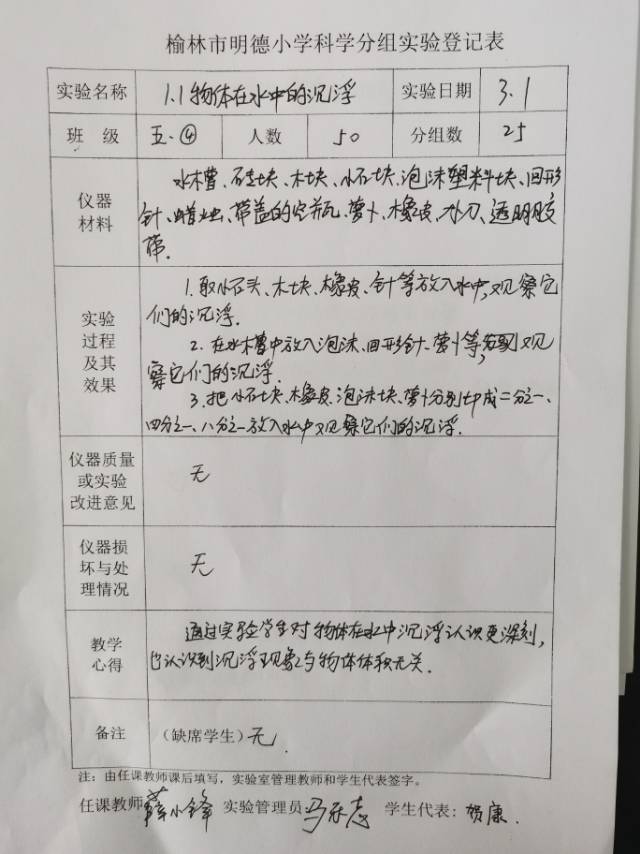 榆林市明德小学科学分组实验登记表
实验名称 1.1物体在水中的沉浮 实验日期 3.1
班 级 五.④ 人数 50 分组数 25
仪器材料
水槽、砖块、木块、小石块、泡沫塑料块、回形
针、蜡烛、带盖的空瓶、萝卜、橡皮、小刀、透明胶
带.
实验过程及其效果
1.取小石头、木块、橡皮、针等放入水中,观察它
们的沉浮.
2.在水槽中放入泡沫、回形针、萝卜等,观
察它们的沉浮.
3.把小石块、橡皮、泡沫块、萝卜分别切成二分之一、
四分之一、八分之一放入水中观察它们的沉浮.
仪器质量或实验改进意见 无
仪器损坏与处理情况 无
教学心得
通过实验学生对物体在水中沉浮认识更深刻,
也认识到沉浮现象与物体体积无关.
备注 (缺席学生)无.
注：由任课教师课后填写，实验室管理教师和学生代表签字。
任课教师 薛小锋 实验管理员 马乐志 学生代表：贺康.